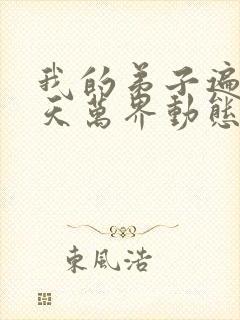 我的弟子遍
天萬界動態
東風浩